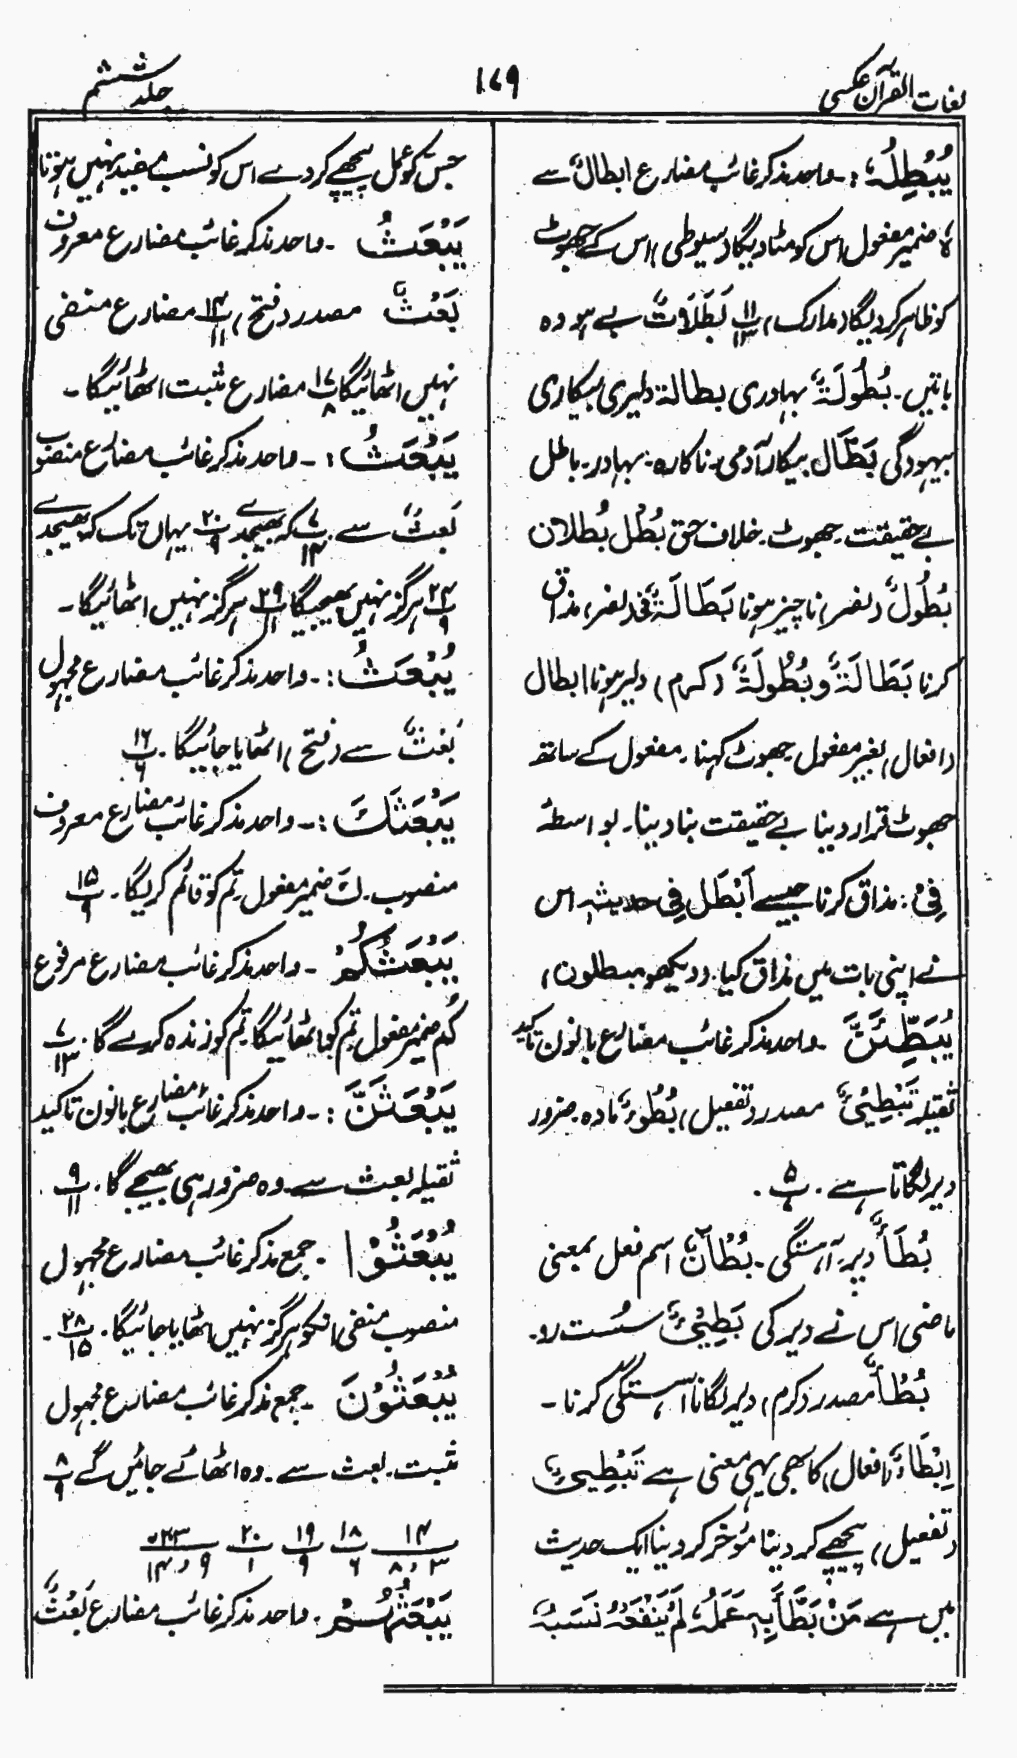 لغات القرآن عکسی
۱۷۹
جلد ششم
یُبْطِلُہٗ :۔ واحد مذکر غائب مضارع ابطالٌ سے
ہٗ ضمیر مفعول اس کو مٹا دیگا (سیوطی) اس کے جھوٹ
کو ظاہر کر دیگا (مدارک) پ۱۱/۱۳ بَطَلَاتٌ بے ہودہ
باتیں۔ بُطُولَۃٌ بہادری بطالۃ دلیری بیکاری
بیہودگی بَطَّال بیکار آدمی۔ ناکارہ۔ بہادر۔ باطل
بے حقیقت۔ جھوٹ۔ خلاف حق بُطْل بُطْلان
بُطُولٌ (نصر) ناچیز ہونا بَطَالَۃٌ (نصر) مذاق
کرنا بَطَالَۃٌ وبُطُولَۃٌ (کرم) دلیر ہونا ابطال
(افعال) بغیر مفعول جھوٹ کہنا۔ مفعول کے ساتھ
جھوٹ قرار دینا بے حقیقت بنا دینا۔ بواسطہ
فِیْ : مذاق کرنا جیسے اَبْطَل فِی حدیثہٖ اس
نے اپنی بات میں مذاق کیا (دیکھو مبطلون)
یُبَطِّئَنَّ ۔ واحد مذکر غائب مضارع بانون تاکید
ثقیلہ تَبْطِیْئٌ مصدر (تفعیل) بُطُوْءٌ مادہ۔ ضرور
دیر لگاتا ہے۔ پ۵
بُطَأٌ دیر۔ آہستگی۔ بُطْآنَ اسم فعل بمعنی
ماضی اس نے دیر کی بَطِیْئٌ سُست رو۔
بُطْأٌ مصدر (کرم) دیر لگانا آہستگی کرنا۔
اِبْطَاءٌ (افعال) کا بھی یہی معنی ہے تَبْطِیْئٌ
(تفعیل) پیچھے کر دینا مُوَخر کر دینا ایک حدیث
میں ہے مَنْ بَطَّأَ بِہٖ عَمَلُہٗ لَمْ یَنْفَعْہُ نَسَبُہٗ
جس کو عمل پیچھے کر دے اس کو نسب مفید نہیں ہوتا
یَبْعَثُ ۔ واحد مذکر غائب مضارع معروف
بَعْثٌ مصدر (فتح) پ۱۴/۱۱ مضارع منفی
نہیں اٹھائیگا پ۱۷/۸ مضارع مثبت اٹھائیگا۔
یَبْعَثُ :۔ واحد مذکر غائب مضارع منصوب
بَعثٌ سے۔ پ۷/۱۴ کہ بھیجدے پ۲۰/۹ یہاں تک کہ بھیجدے
پ۲۴/۹ ہرگز نہیں بھیجیگا پ۲۹/۱۱ ہرگز نہیں اٹھائیگا۔
یُبْعَثُ :۔ واحد مذکر غائب مضارع مجہول
بَعْثٌ سے (فتح) اٹھایا جائیگا۔ پ۱۶/۶
یَبْعَثَکَ :۔ واحد مذکر غائب مضارع معروف
منصوب۔ کَ ضمیر مفعول۔ تم کو قائم کریگا۔ پ۱۵/۹
یَبْعَثُکُمْ ۔ واحد مذکر غائب مضارع مرفوع
کُم ضمیر مفعول تم کو اٹھائیگا تم کو زندہ کرے گا۔ پ۷/۱۳
یَبْعَثَنَّ :۔ واحد مذکر غائب مضارع بانون تاکید
ثقیلہ بعث سے۔ وہ ضرور ہی بھیجے گا۔ پ۹/۱۱
یُبْعَثُوْا ۔ جمع مذکر غائب مضارع مجہول
منصوب منفی انکو ہرگز نہیں اٹھایا جائیگا۔ پ۲۸/۱۵
یُبْعَثُوْنَ ۔ جمع مذکر غائب مضارع مجہول
مثبت۔ بعث سے۔ وہ اٹھائے جائیں گے پ۸/۹
۱۴/۳،۸ پ۱۸/۶ پ۱۹/۹ پ۲۰/۱ پ۲۳/۹،۱۴
یَبْعَثُہُمْ ۔ واحد مذکر غائب مضارع بَعْثٌ